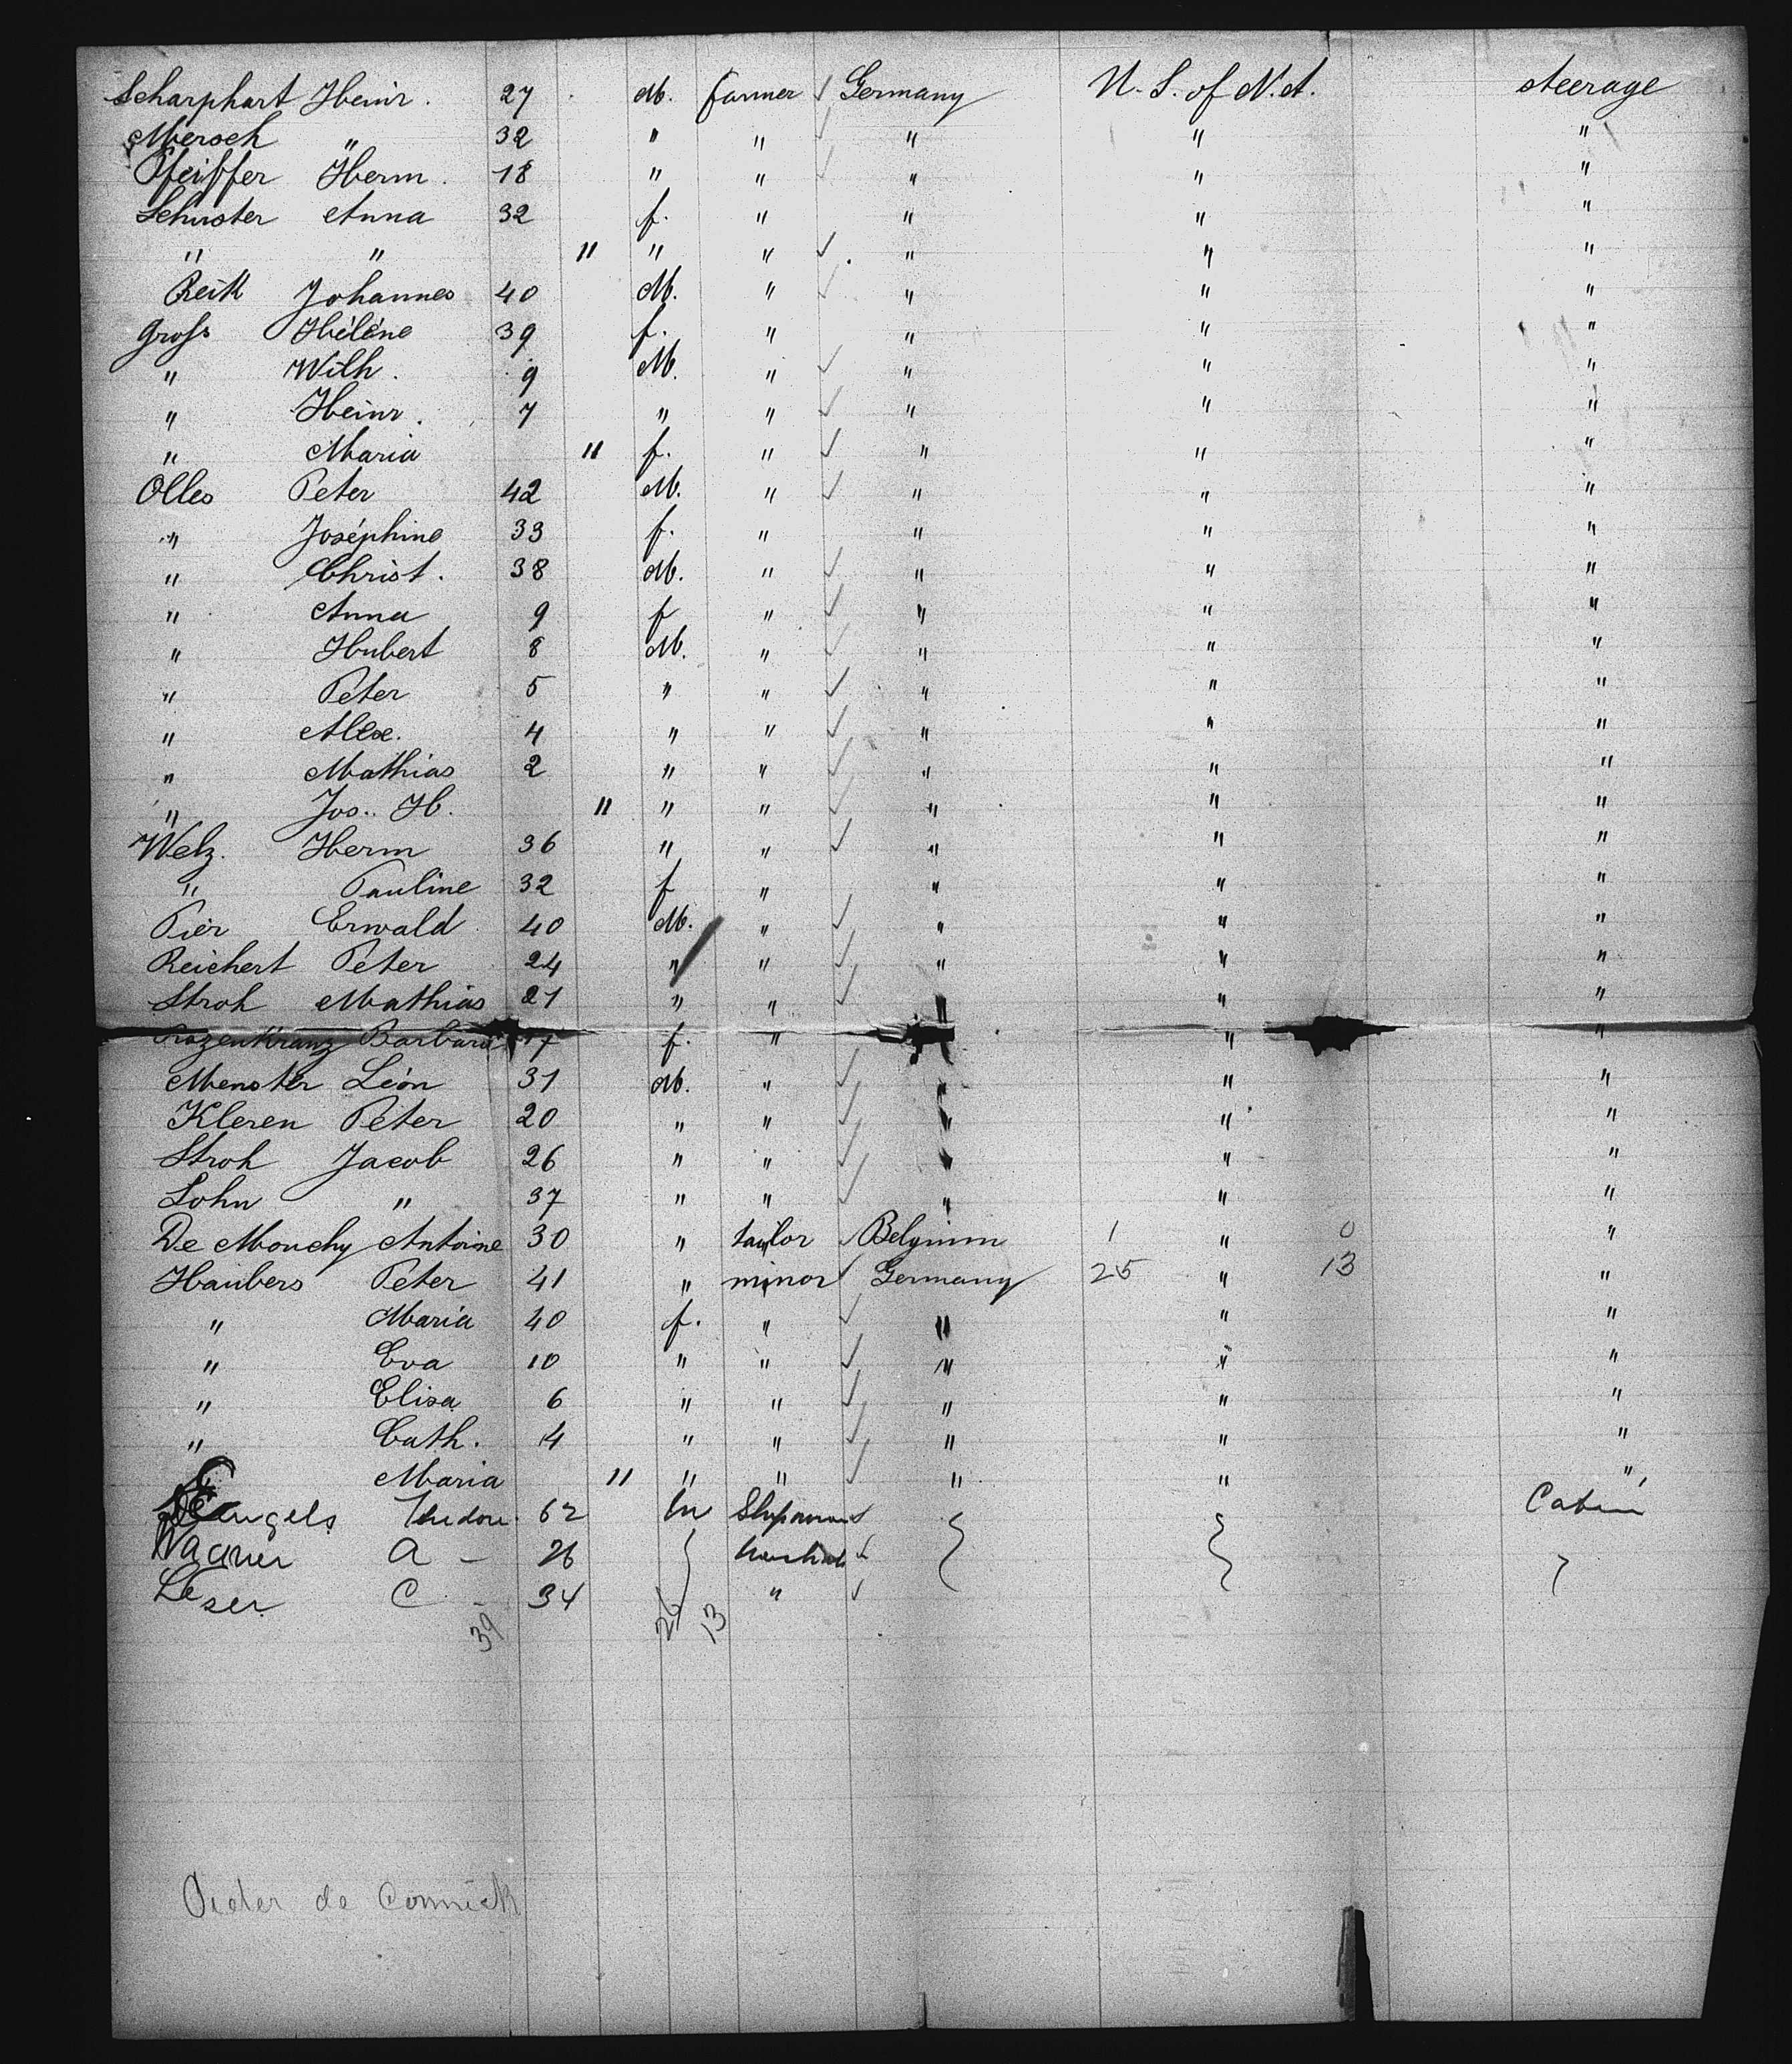 Scharphart Heinr. 27 M. farmer ✓ Germany U. S. of N. A. steerage
Mersch " 32 " " ✓ " " "
Pfeiffer Herm. 18 " " ✓ " " "
Schuster Anna 32 f. " " " "
" " " " " ✓ " " "
Reik Johannes 40 M. " ✓ " " "
Gross Héléne 39 f. " " " "
" Wilh. 9 M. " ✓ " " "
" Heinr. 7 " " ✓ " " "
" Maria " f. " ✓ " " "
Olles Peter 42 M. " ✓ " " "
" Joséphine 33 f. " " " "
" Christ. 38 M. " ✓ " " "
" Anna 9 f " ✓ " " "
" Hubert 8 M. " ✓ " " "
" Peter 5 " " ✓ " " "
" Alex. 4 " " ✓ " " "
" Mathias 2 " " ✓ " " "
" Jos. H. " " " ✓ " " "
Welz. Herm 36 " " ✓ " " "
" Pauline 32 f " " " "
Pier Erwald 40 M. " ✓ " " "
Reichert Peter 24 " " ✓ " " "
Stroh Mathias 21 " " ✓ " " "
Rozenkranz Barbara 17 f. " " "
Menster Léon 31 M. " ✓ " " "
Kleren Peter 20 " " ✓ " " "
Stroh Jacob 26 " " ✓ " " "
Lohn " 37 " " ✓ " " "
De Mouchy Antoine 30 " taylor ✓ Belgium 1 " 0 "
Haubers Peter 41 " minor ✓ Germany 25 " 13 "
" Maria 40 f. " ✓ " " "
" Eva 10 " " ✓ " " "
" Elisa 6 " " ✓ " " "
" Cath. 4 " " ✓ " " "
" Maria " " " ✓ " " "
Engels 62 m ✓ Cabin
Wagner A - 26 ✓
Leser C - 34 " ✓
39 26 13
Pieter de Connick